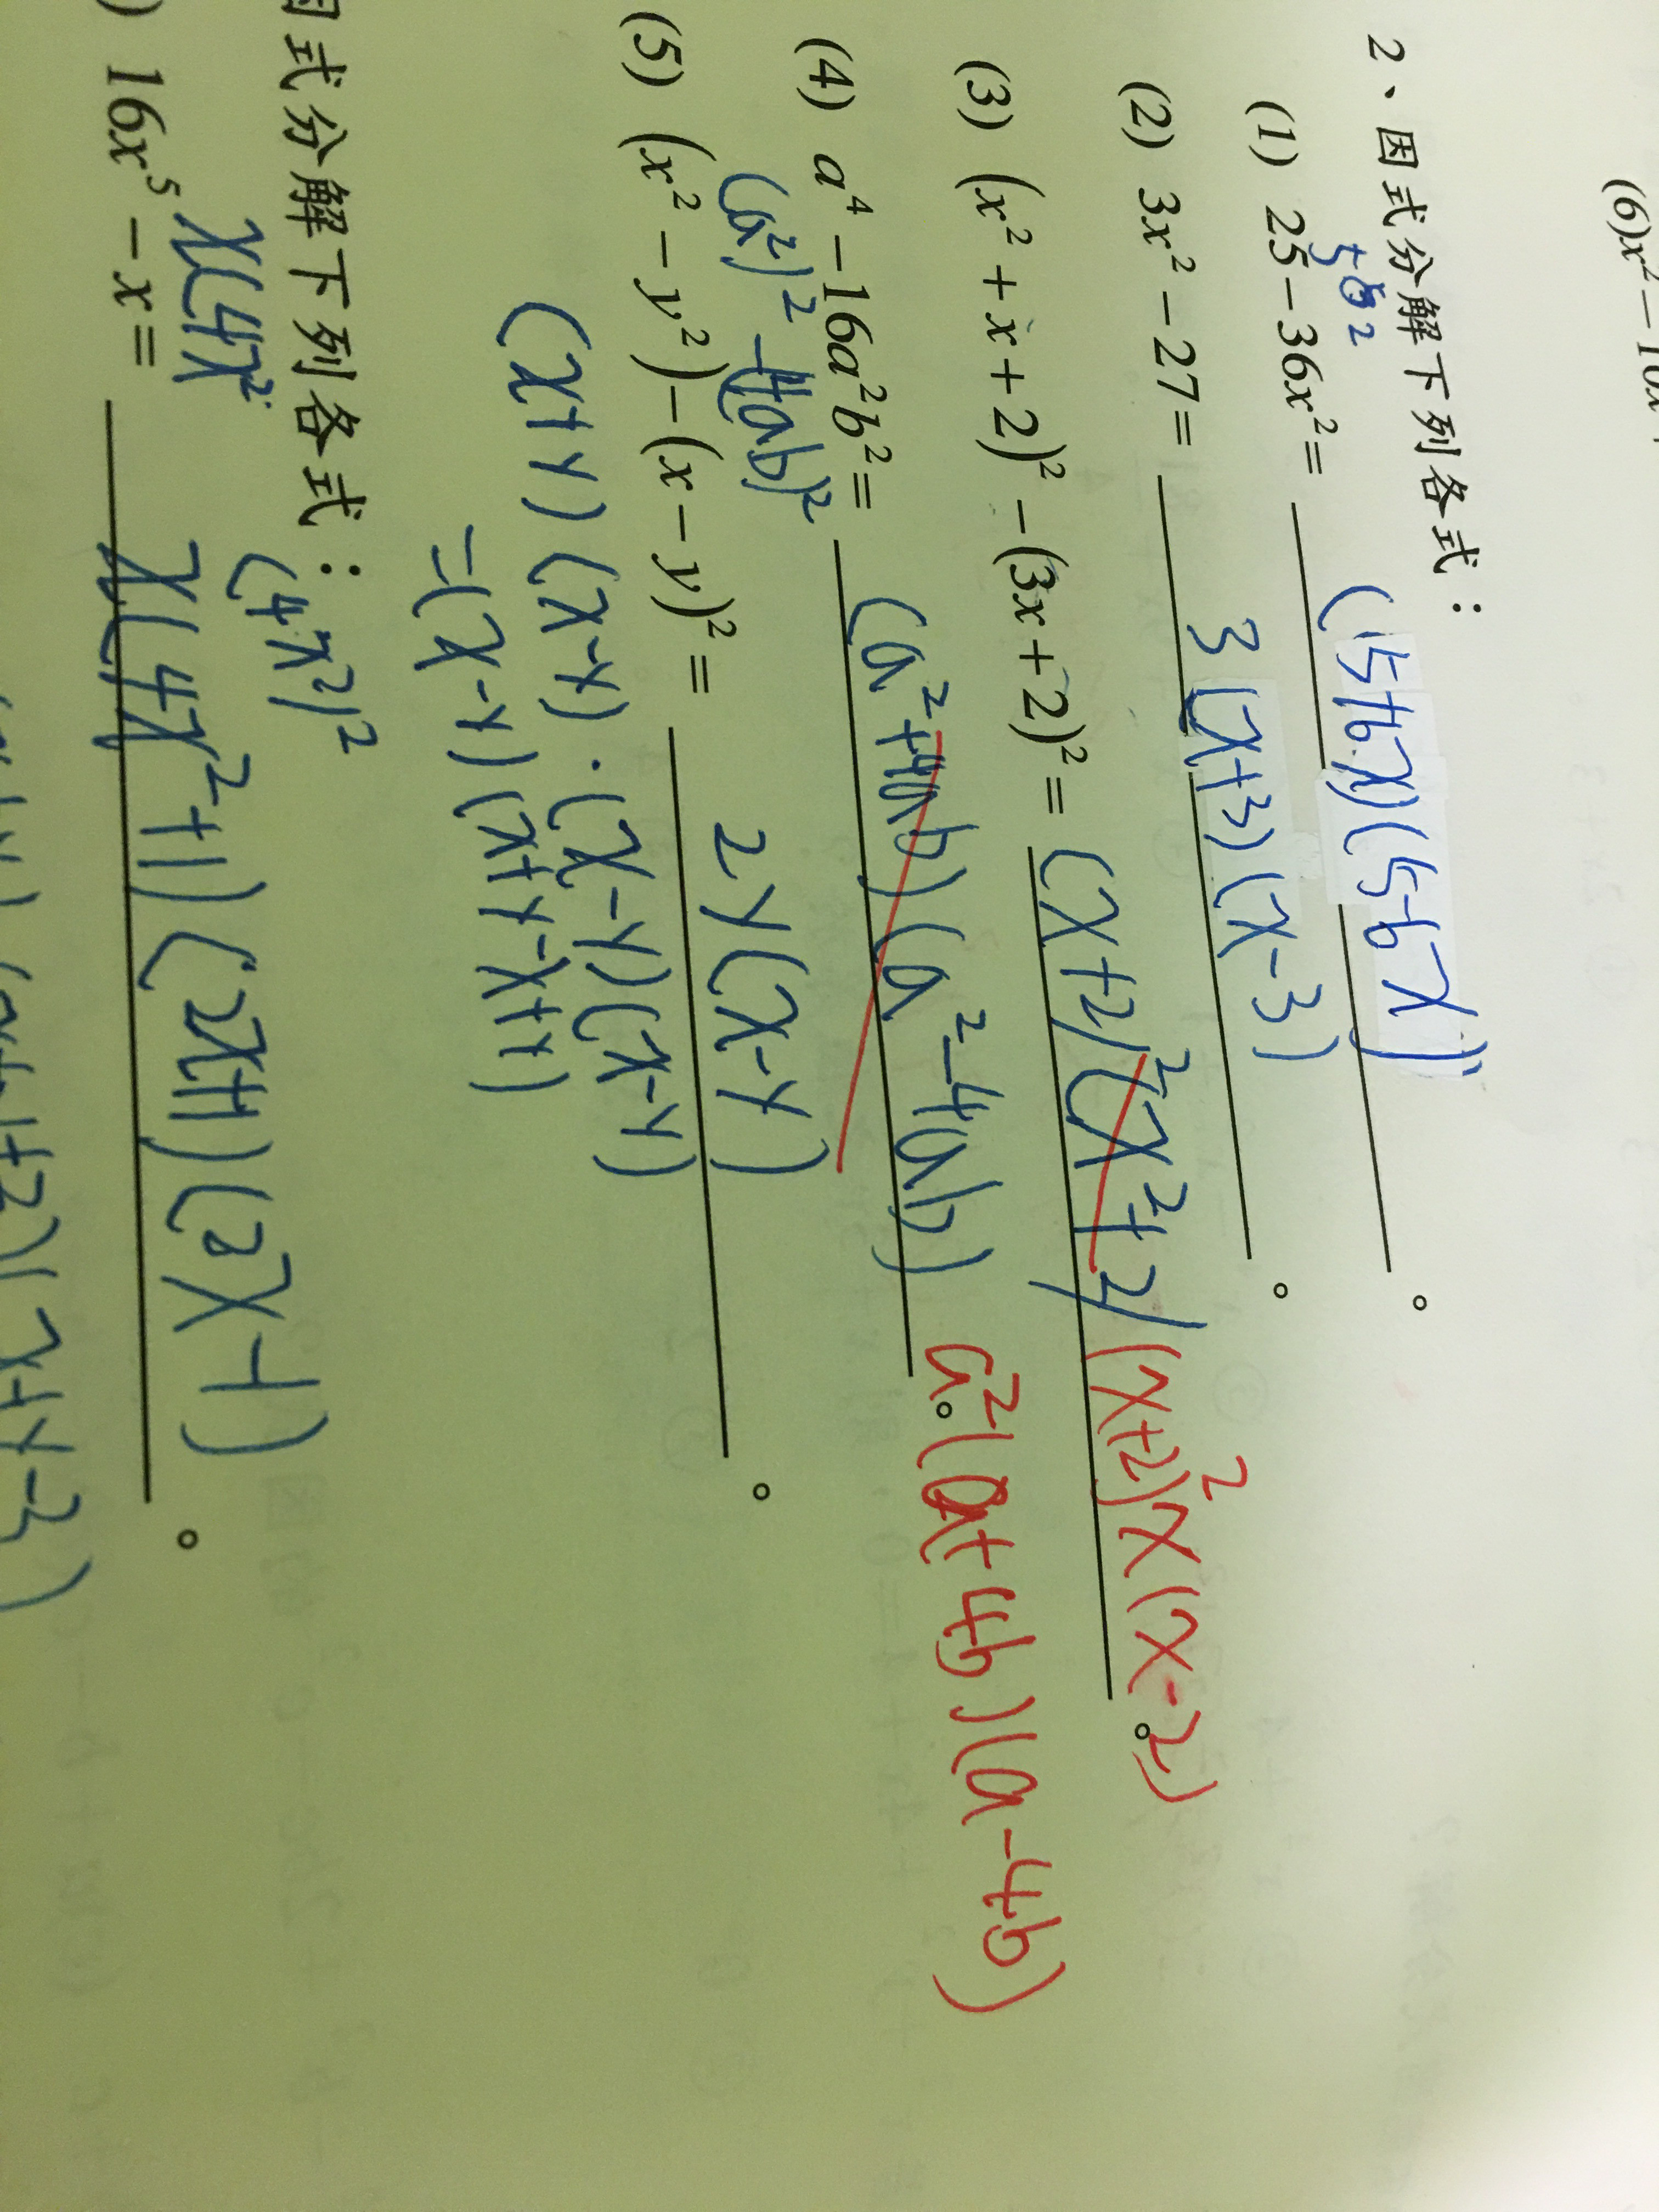 (6)x²－10x
2、因式分解下列各式：
(1) 25－36x²= (5+6x)(5-6x) 。
(2) 3x²－27= 3(x+3)(x-3) 。
(3) (x²+x+2)²－(3x+2)²= (x+2)²(x²+2) (x+2)²x(x-2) 。
(4) a⁴－16a²b²= (a²+4ab)(a²-4ab) 。 a²(a+4b)(a-4b)
(a²)²-(4ab)²
(5) (x²－y²)－(x－y)²= 2y(x-y) 。
(x+y)(x-y)·(x-y)(x-y)
=(x-y)(x+y-x+y)
因式分解下列各式：
(4x²)²
x(4x²
) 16x⁵－x= x(4x²+1)(2x+1)(2x-1) 。